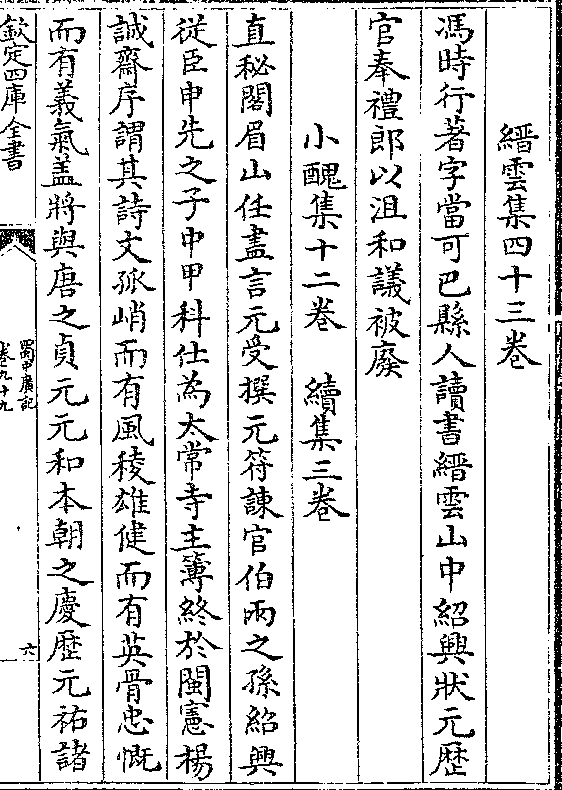 縉雲集四十三卷
馮時行著字當可巴縣人讀書縉雲山中紹興狀元歷
官奉禮郎以沮和議被廢
小醜集十二卷　續集三卷
直秘閣眉山任盡言元受撰元符諫官伯雨之孫紹興
從臣申先之子中甲科仕為太常寺主簿終於閩憲楊
誠齋序謂其詩文孤峭而有風稜雄健而有英骨忠慨
而有義氣盖將與唐之貞元元和本朝之慶歷元祐諸
欽定四庫全書
蜀中廣記
卷九十九
六